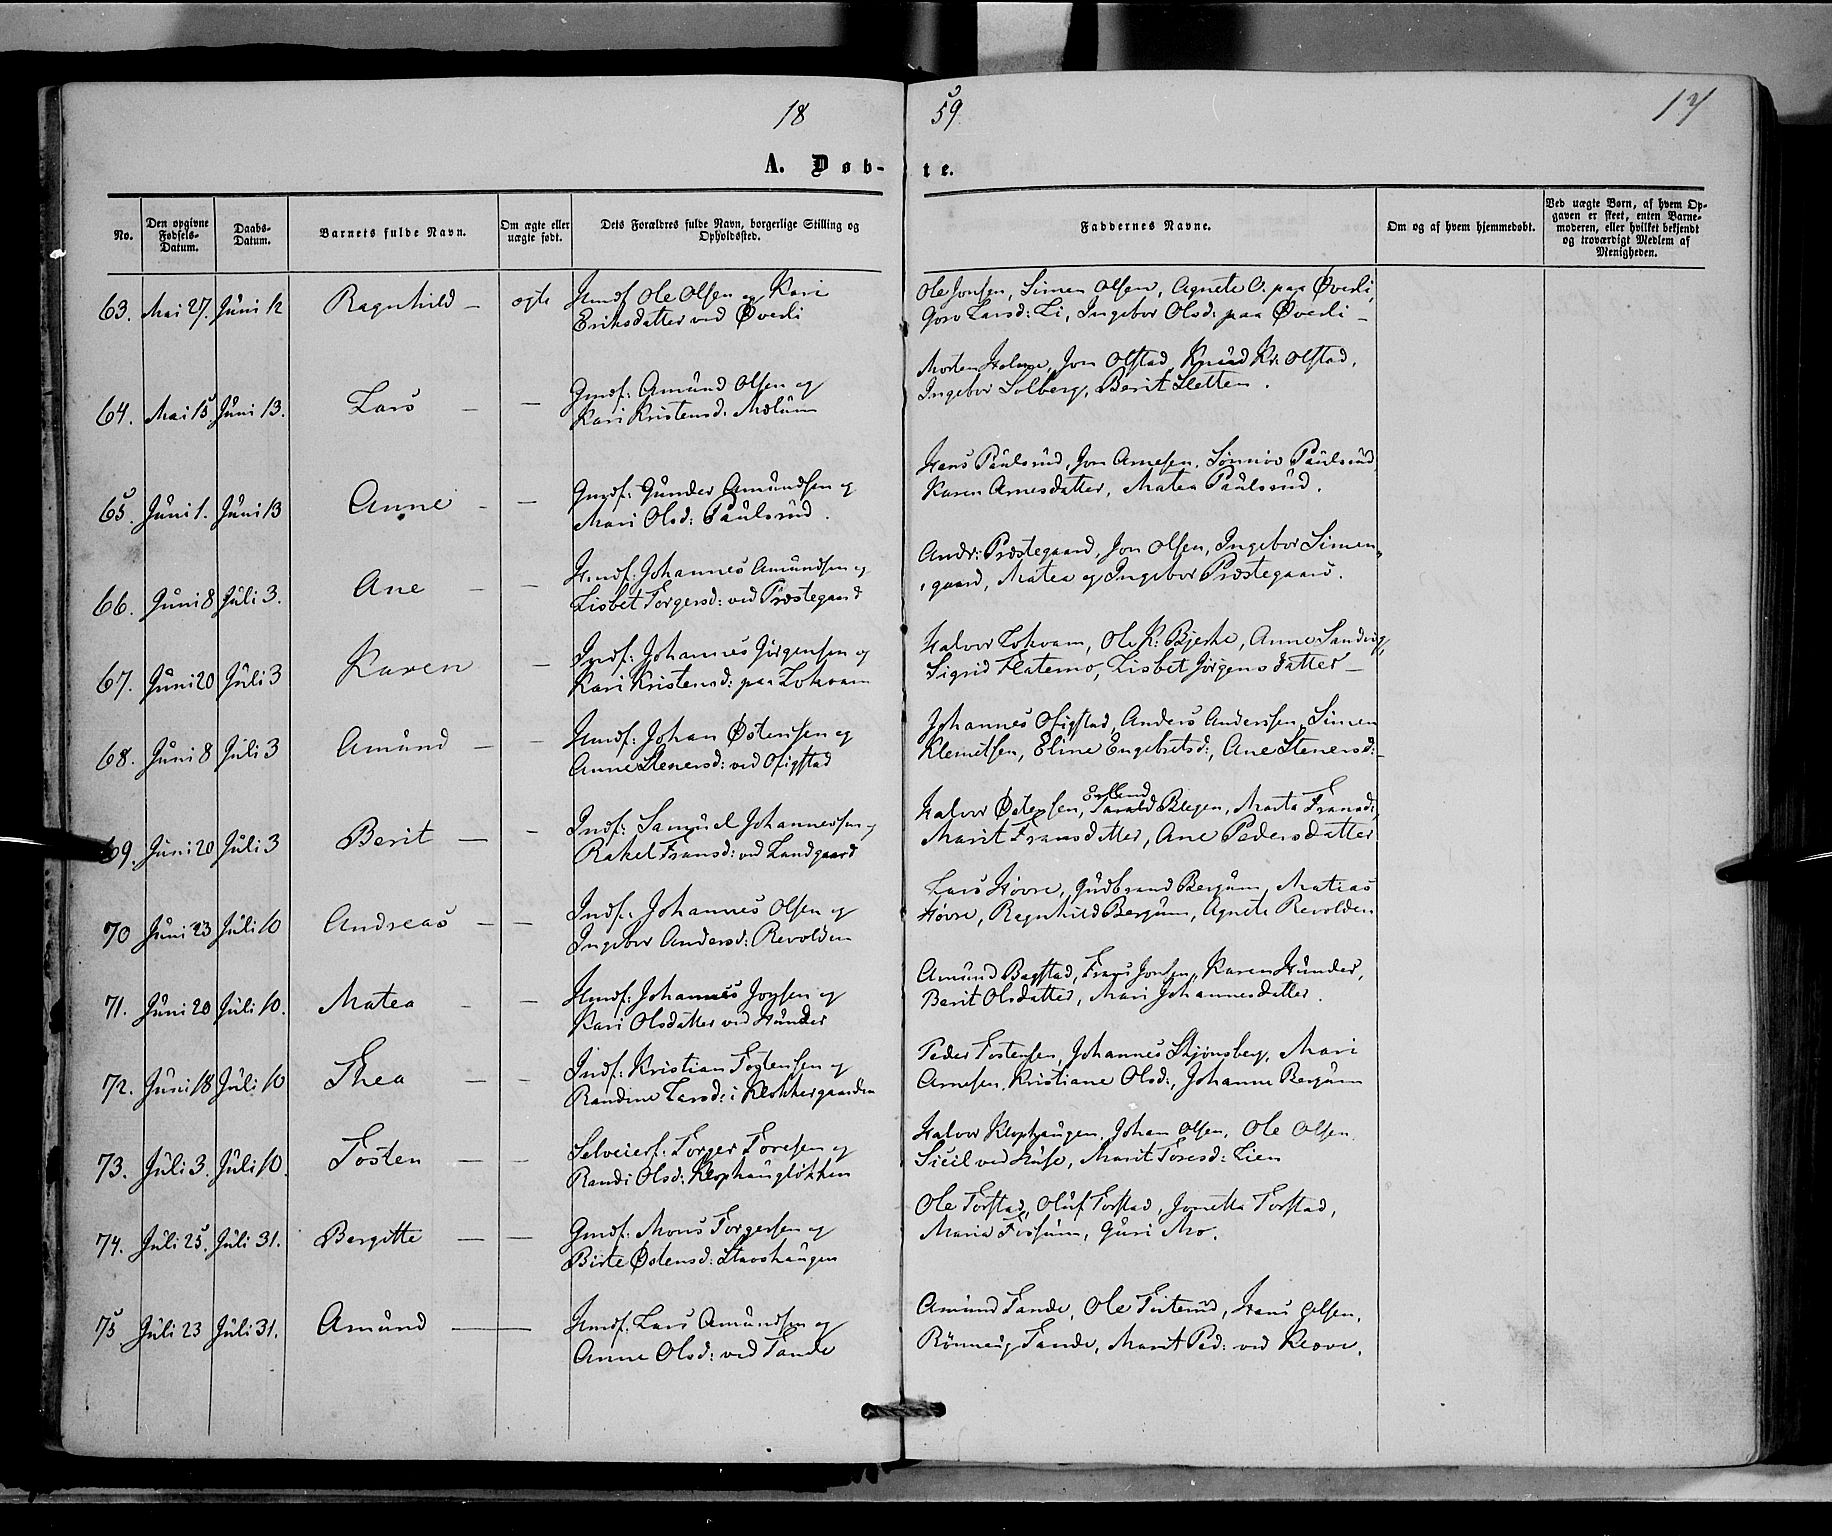 18 59 17
A. Døb- te.
No. Den opgivne Fødsels-Datum. Daabs-Datum. Barnets fulde Navn. Om ægte eller uægte født. Dets Forældres fulde Navn, borgerlige Stilling og Opholdssted. Faddernes Navne. Om og af hvem hjemmedøbt. Ved uægte Børn, af hvem Opgaven er skeet, enten Barnemoderen, eller hvilket bekjendt og troværdigt Medlem af Menigheden.
63. Mai 27. Juni 12 Ragnhild – ægte Hmdf. Ole Olsen og Kari
Eriksdatter ved Øverli
Ole Jonsen, Simen Olsen, Agnete O. paa Øverli,
Goro Larsd: Li, Ingebor Olsd: paa Øverli –
64. Mai 15. Juni 13. Lars – – Gmdf: Amund Olsen og
Kari Kristensd: Mælum
Morten Holme, Jon Olstad, Knud Kr. Olstad,
Ingebor Solberg, Berit Sletten.
65. Juni 1. Juni 13 Anne – – Gmdf: Gunder Amundsen og
Mari Olsd: Paulsrud.
Hans Paulsrud, Jon Arnesen, Sønnøv Paulsrud,
Karen Arnesdatter, Matea Paulsrud.
66. Juni 8 Juli 3. Ane – – Hmdf: Johannes Amundsen og
Lisbet Torgersd: ved Præstegaard
Andr: Præstegaard, Jon Olsen, Ingebor Simen-
gaard, Matea og Ingebor Præstegaard.
67. Juni 20 Juli 3 Karen – Indf: Johannes Jørgensen og
Kari Kristensd: paa Lokvam
Halvor Lokvam, Ole K. Bjerke, Anne Sandvig,
Sigrid Flatemo, Lisbet Jørgensdatter –
68. Juni 8 Juli 3 Amund – – Hmdf: Johan Østensen og
Anne Stenersd: ved Ofigstad
Johannes Ofigstad, Anders Anderssen, Simen
Klemetsen, Eline Engebretsd:, Ane Stenersd:
69. Juni 20 Juli 3 Berit – – Indf: Samuel Johannessen og
Rakel Fransd: ved Landgaard
Erland
Halvor Østensen, Blegen, Marta Fransd:,
Marit Fransdatter, Ane Pedersdatter
70 Juni 23 Juli 10 Andreas – – Indf: Johannes Olsen og
Ingebor Andersd: Revolden
Lars Høvre, Gudbrand Bergum, Matias
Høvre, Regnhild Bergum, Agnete Revolden
71. Juni 20 Juli 10. Matea – – Hmdf: Johannes og
Kari Olsdatter ved Hunder
Amund Bagstad, Frans Jonsen, Karen Hunder,
Berit Olsdatter, Mari Johannesdatter.
72. Juni 18 Juli 10 Thea – – Indf: Kristian Tostensen og
Randine Larsd: i Klokkergaarden
Peder Tostensen, Johannes Skjønsberg, Mari
Arnesen, Kristiane Olsd:, Johanne Bergum
73. Juli 3. Juli 10. Tosten – – Selveierf: Torger Toresen og
Randi Olsd: Klophaugløkken
Halvor Klophaugen, Johan Olsen, Ole Olsen,
Sicil ved Huse, Marit Toresd: Lien
74. Juli 25. Juli 31. Bergitte – – Gmdf: Mons Torgersen og
Birte Østensd: Stavshaugen
Ole Forstad, Oluf Forstad, Jonetta Forstad,
Maria Fossum, Guri Mo.
75 Juli 23 Juli 31. Amund – – Hmdf: Lars Amundsen og
Anne Olsd: ved Tande
Amund Tande, Ole Hans Olsen,
Rønnaug Tande, Marit Ped: ved Klove.